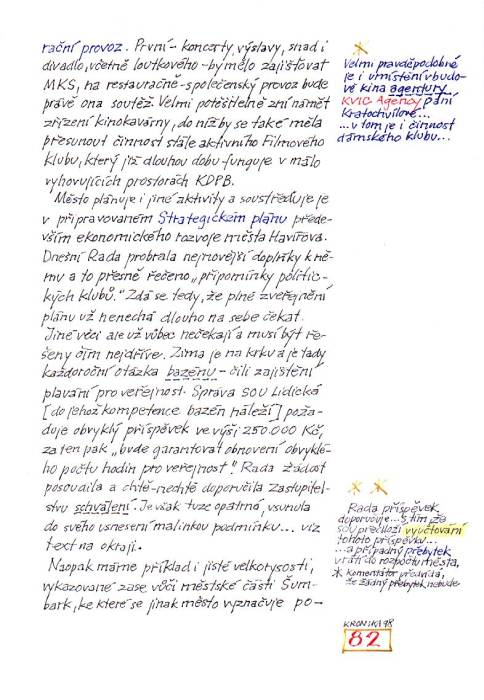 rační provoz. První - koncerty, výstavy, snad i
divadlo, včetně loutkového - by mělo zajišťovat
MKS, na restauračně-společenský provoz bude
právě ona soutěž. Velmi potěšitelně zní námět
zřízení kinokavárny, do níž by se také měla
přesunout činnost stále aktivního Filmového
klubu, který již dlouhou dobu funguje v málo
vyhovujících prostorách KDPB.
Město plánuje i jiné aktivity a soustřeďuje je
v připravovaném Strategickém plánu přede-
vším ekonomického rozvoje města Havířova.
Dnešní Rada probrala nejnovější doplňky k ně-
mu a to přesně řečeno „připomínky politic-
kých klubů." Zdá se tedy, že plné zveřejnění
plánu už nenechá dlouho na sebe čekat.
Jiné věci ale už vůbec nečekají a musí být ře-
šeny čím nejdříve. Zima je na krku a je tady
každoroční otázka bazénu - čili zajištění
plavání pro veřejnost. Správa SOU Lidická
[do jehož kompetence bazén náleží] poža-
duje obvyklý příspěvek ve výši 250.000 Kč,
za ten pak „bude garantovat obnovení obvyklé-
ho počtu hodin pro veřejnost"! Rada žádost
posoudila a chtě-nechtě doporučila zastupitel-
stvu schválení. Je však tuze opatrná, vsunula
do svého usnesení malinkou podmínku... viz
text na okraji.
Naopak máme příklad i jisté velkotysosti,
vykazované zase vůči městské části Šum-
bark, ke které se jinak město vyznačuje po-
Velmi pravděpodobné
je i umístění v budo-
vě kina agentury
KVIC Agency paní
Kratochvílové...
...v tom je i činnost
dámského klubu...
Rada příspěvek
doporučuje... s tím, že
SOU předloží vyúčtování
tohoto příspěvku...
...a případný přebytek
vrátí do rozpočtu města.
Komentátor předvídá,
že žádný přebytek nebude
KRONIKA 98
82